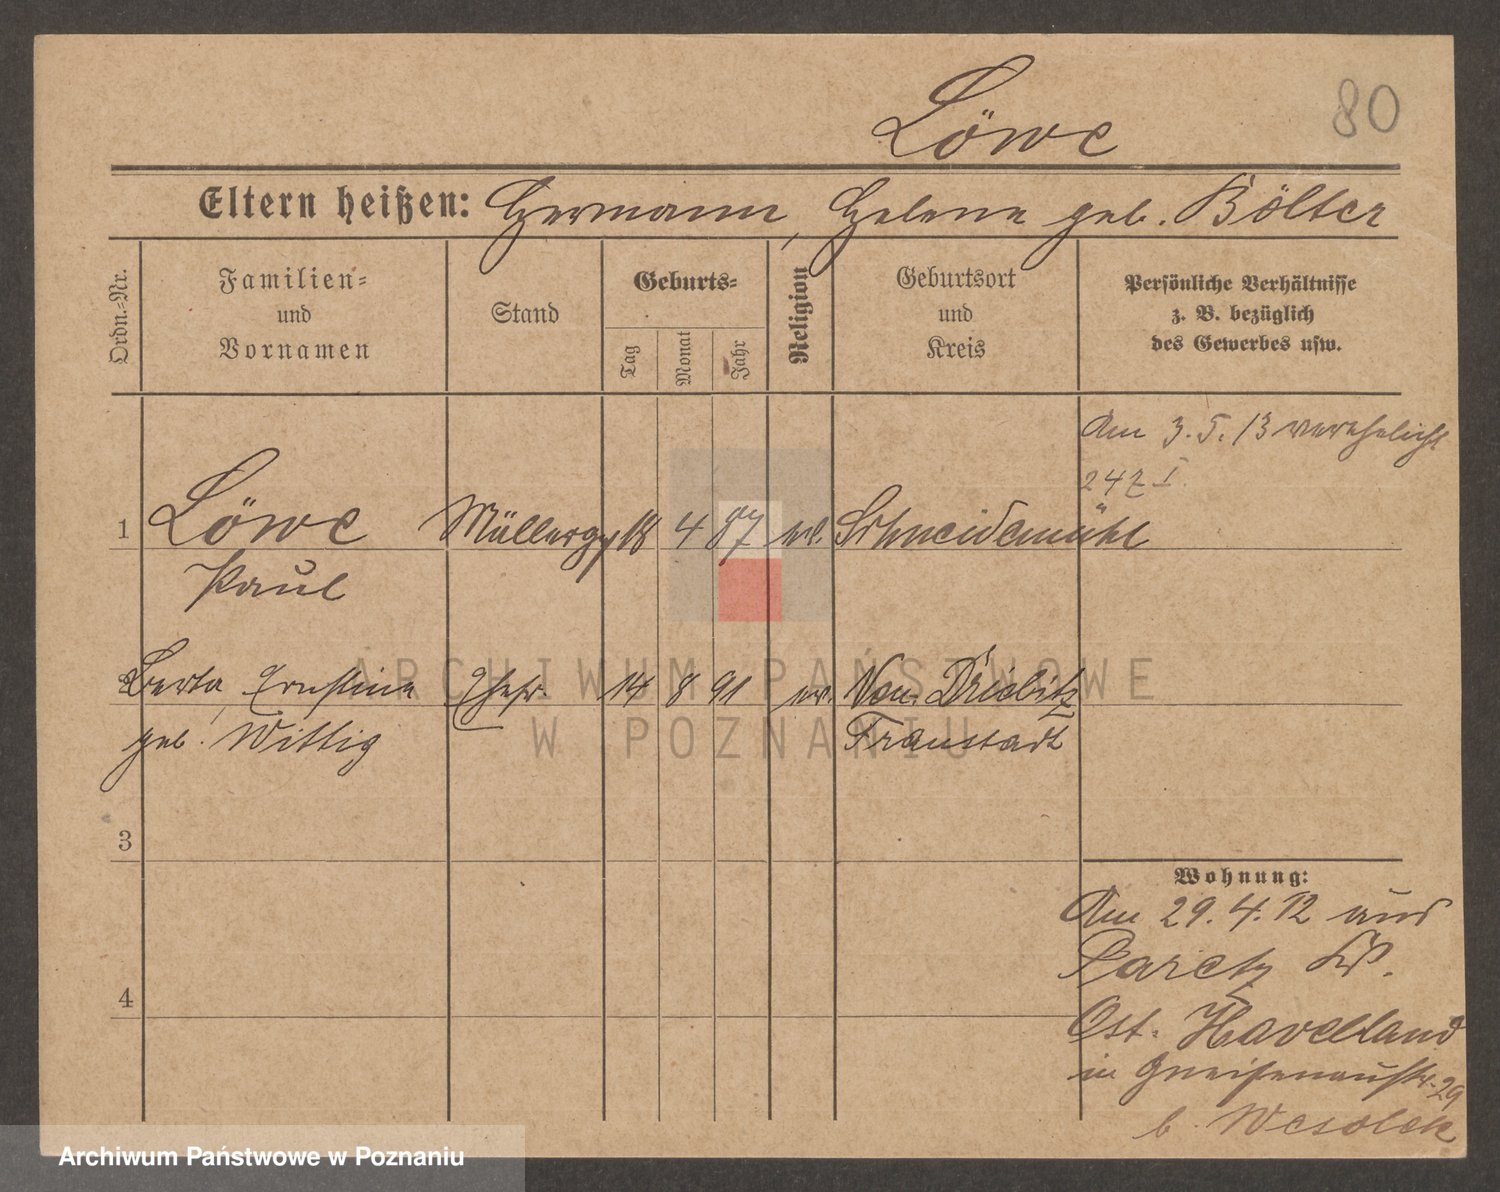 Löwe
80
Eltern heißen: Hermann, Helene geb. Bölter
Ordn.-Nr.
Familien-
und
Vornamen
Stand
Geburts-
Tag
Monat
Jahr
Religion
Geburtsort
und
Kreis
Persönliche Verhältnisse
z. B. bezüglich
des Gewerbes usw.
Am 3.5.13 verehelicht
247 I.
1 Löwe Müllerg 18 4 87 ev. Schneidemühl
Paul
2 Berta, Ernstine Ehefr. 14 8 91 ev. Neu-Driebitz
geb. Wittig Fraustadt
3
4
Wohnung:
Am 29.4.12 aus
Paretz Kr.
Ost-Havelland
in Gneisenaustr. 29
b. Wesolek
ARCHIWUM PAŃSTWOWE
W POZNANIU
Archiwum Państwowe w Poznaniu